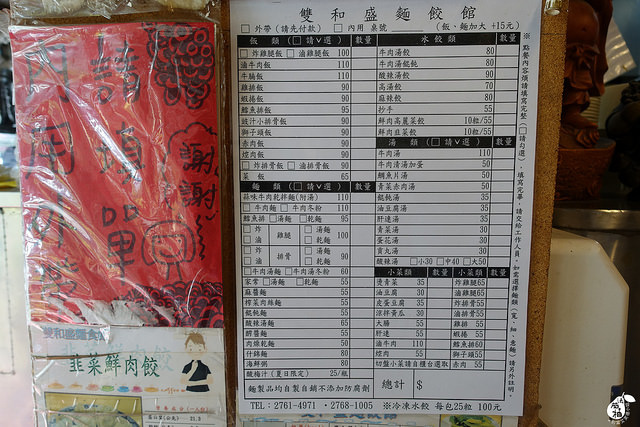 雙和盛麵餃館
□ 外帶 (請先付款) □ 內用 桌號 (飯、麵加大 +15元)
飯 類 (□請∨選) 數量
□炸雞腿飯 □滷雞腿飯 100
滷牛肉飯 110
牛腩飯 110
雞排飯 90
蝦捲飯 90
鱈魚排飯 95
豉汁小排骨飯 90
獅子頭飯 90
赤肉飯 90
焢肉飯 90
□炸排骨飯 □滷排骨飯 90
菜 飯 65
麵 類 (□請∨選) 數量
蒜味牛肉乾拌麵(附湯) 110
□牛肉麵 □牛肉冬粉 110
鱈魚排 □湯麵 □乾麵 95
□炸 □滷 雞腿 □湯麵 □乾麵 100
□炸 □滷 排骨 □湯麵 □乾麵 90
□牛肉湯麵 □牛肉湯冬粉 60
家常 □湯麵 □乾麵 55
麻醬麵 55
榨菜肉絲麵 55
餛飩麵 55
酸辣湯麵 65
炸醬麵 55
肉燥乾麵 50
什錦麵 80
海鮮粥 80
酸梅汁 (夏日限定) 25/瓶
麵製品均自製自銷不添加防腐劑
水餃類 數量
牛肉湯餃 80
牛肉湯餛飩 80
酸辣湯餃 90
高湯餃 70
麻辣餃 80
抄手 55
鮮肉高麗菜餃 10粒/55
鮮肉韭菜餃 10粒/55
湯 類 (□請∨選) 數量
牛肉湯 110
牛肉清湯加蛋 50
鯛魚片湯 50
青菜赤肉湯 50
餛飩湯 35
油豆腐湯 35
肝連湯 35
青菜湯 30
蛋花湯 30
貢丸湯 30
酸辣湯 □小30 □中40 □大50
小菜類 數量 小菜類 數量
燙青菜 35 炸雞腿65
油豆腐 30 滷雞腿65
皮蛋豆腐 35 炸排骨55
涼拌黃瓜 30 滷排骨55
大腸 55 雞排 55
肝連 55 蝦捲 55
滷牛肉 110 鱈魚排60
焢肉 55 獅子頭55
切盤小菜請自櫃台選取 赤肉 55
總計 $
TEL：2761-4971・2768-1005 ※冷凍水餃 每包25粒 100元
內用外
請領單
謝謝
雙和盛麵食
韭菜鮮肉餃